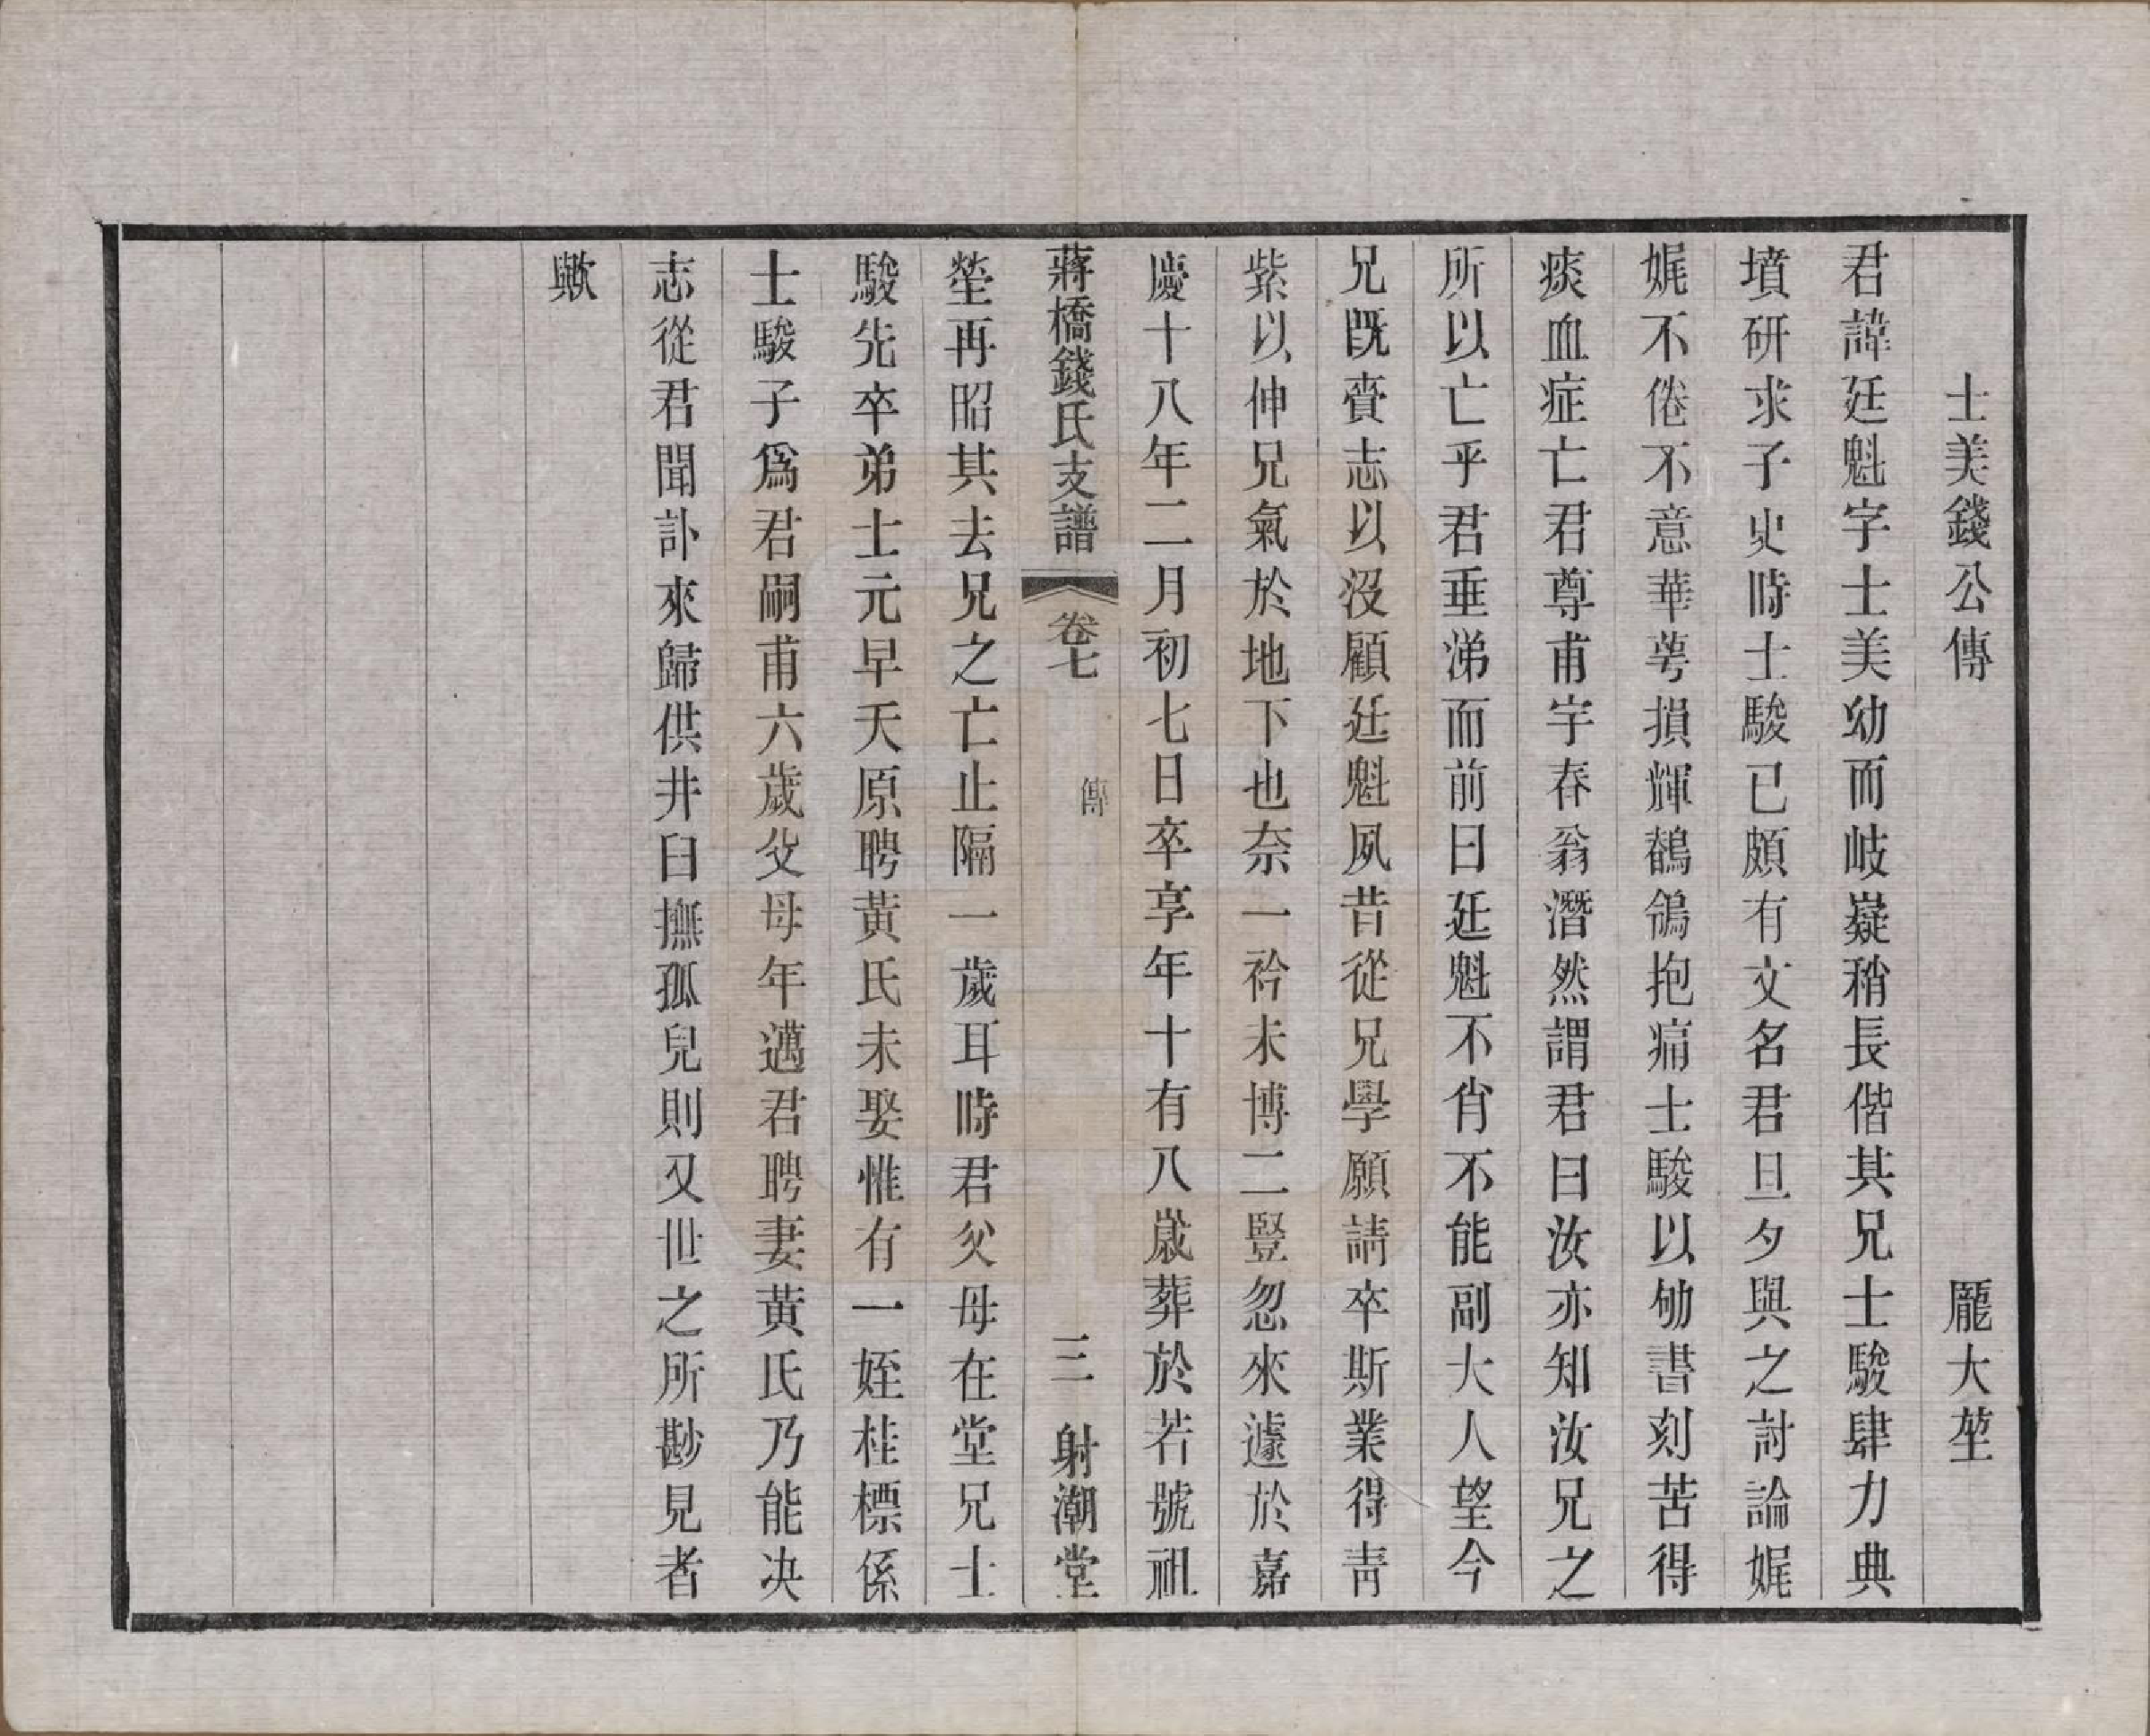 士美錢公傳　龎大堃
君諱廷魁字士美幼而岐嶷稍長偕其兄士駿肆力典
墳研求子史時士駿已頗有文名君旦夕與之討論娓
娓不倦不意華萼損輝鶺鴒抱痛士駿以劬書刻苦得
痰血症亡君尊甫宇春翁潛然謂君曰汝亦知汝兄之
所以亡乎君垂涕而前曰廷魁不肖不能副大人望今
兄旣賫志以沒顧廷魁夙昔從兄學願請卒斯業得靑
紫以伸兄氣於地下也奈一衿未博二豎忽來遽於嘉
慶十八年二月初七日卒享年十有八歲葬於若號祖
蔣橋錢氏支譜　卷七　傳　三　射潮堂
塋再昭其去兄之亡止隔一歲耳時君父母在堂兄士
駿先卒弟士元早夭原聘黃氏未娶惟有一姪桂標係
士駿子爲君嗣甫六歲父母年邁君聘妻黃氏乃能决
志從君聞訃來歸供井臼撫孤兒則又世之所尠見者
歟